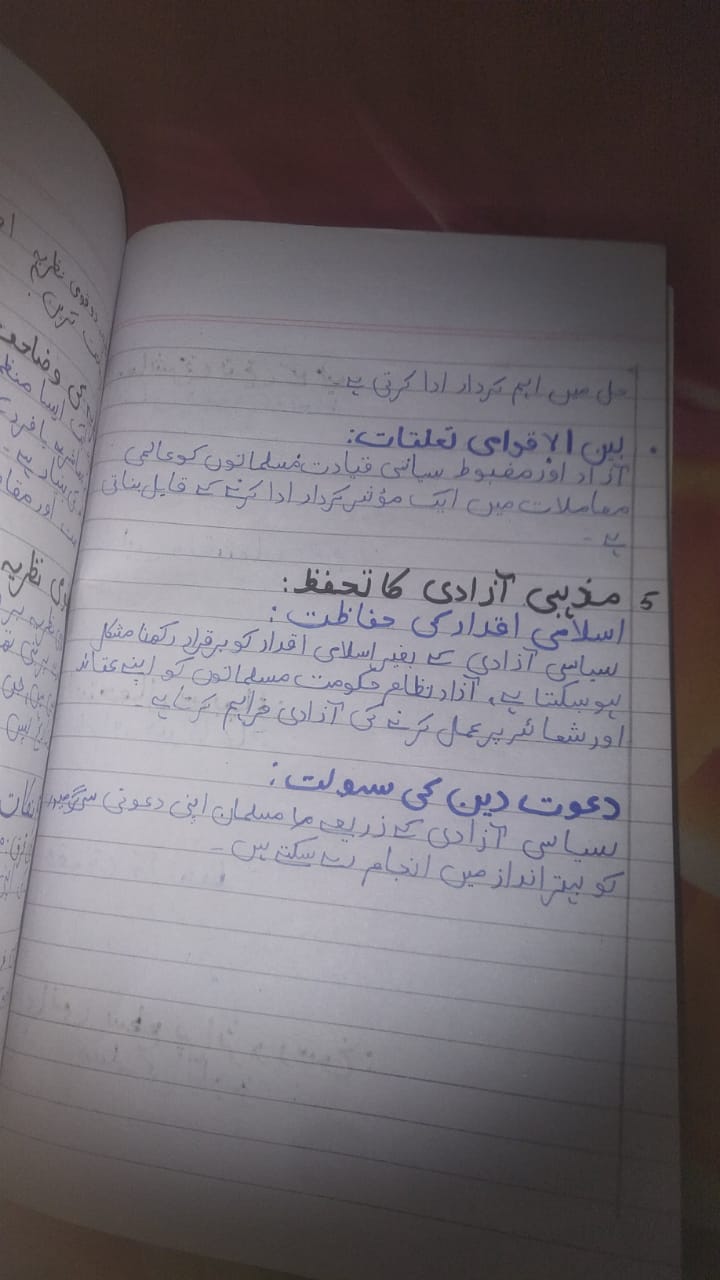 حل میں اہم کردار ادا کرتی ہے۔
• بین الاقوامی تعلقات:
آزاد اور مضبوط سیاسی قیادت مسلمانوں کو عالمی
معاملات میں ایک مؤثر کردار ادا کرنے کے قابل بناتی
ہے۔
5 مذہبی آزادی کا تحفظ:
اسلامی اقدار کی حفاظت:
سیاسی آزادی کے بغیر اسلامی اقدار کو برقرار رکھنا مشکل
ہو سکتا ہے، آزاد نظام حکومت مسلمانوں کو اپنے عقائد
اور شعائر پر عمل کرنے کی آزادی فراہم کرتا ہے۔
دعوت دین کی سہولت:
سیاسی آزادی کے ذریعے مسلمان اپنی دعوتی سرگرمیوں
کو بہتر انداز میں انجام دے سکتے ہیں۔
دو قومی نظریہ
ترین
کی وضاحت
نظریہ